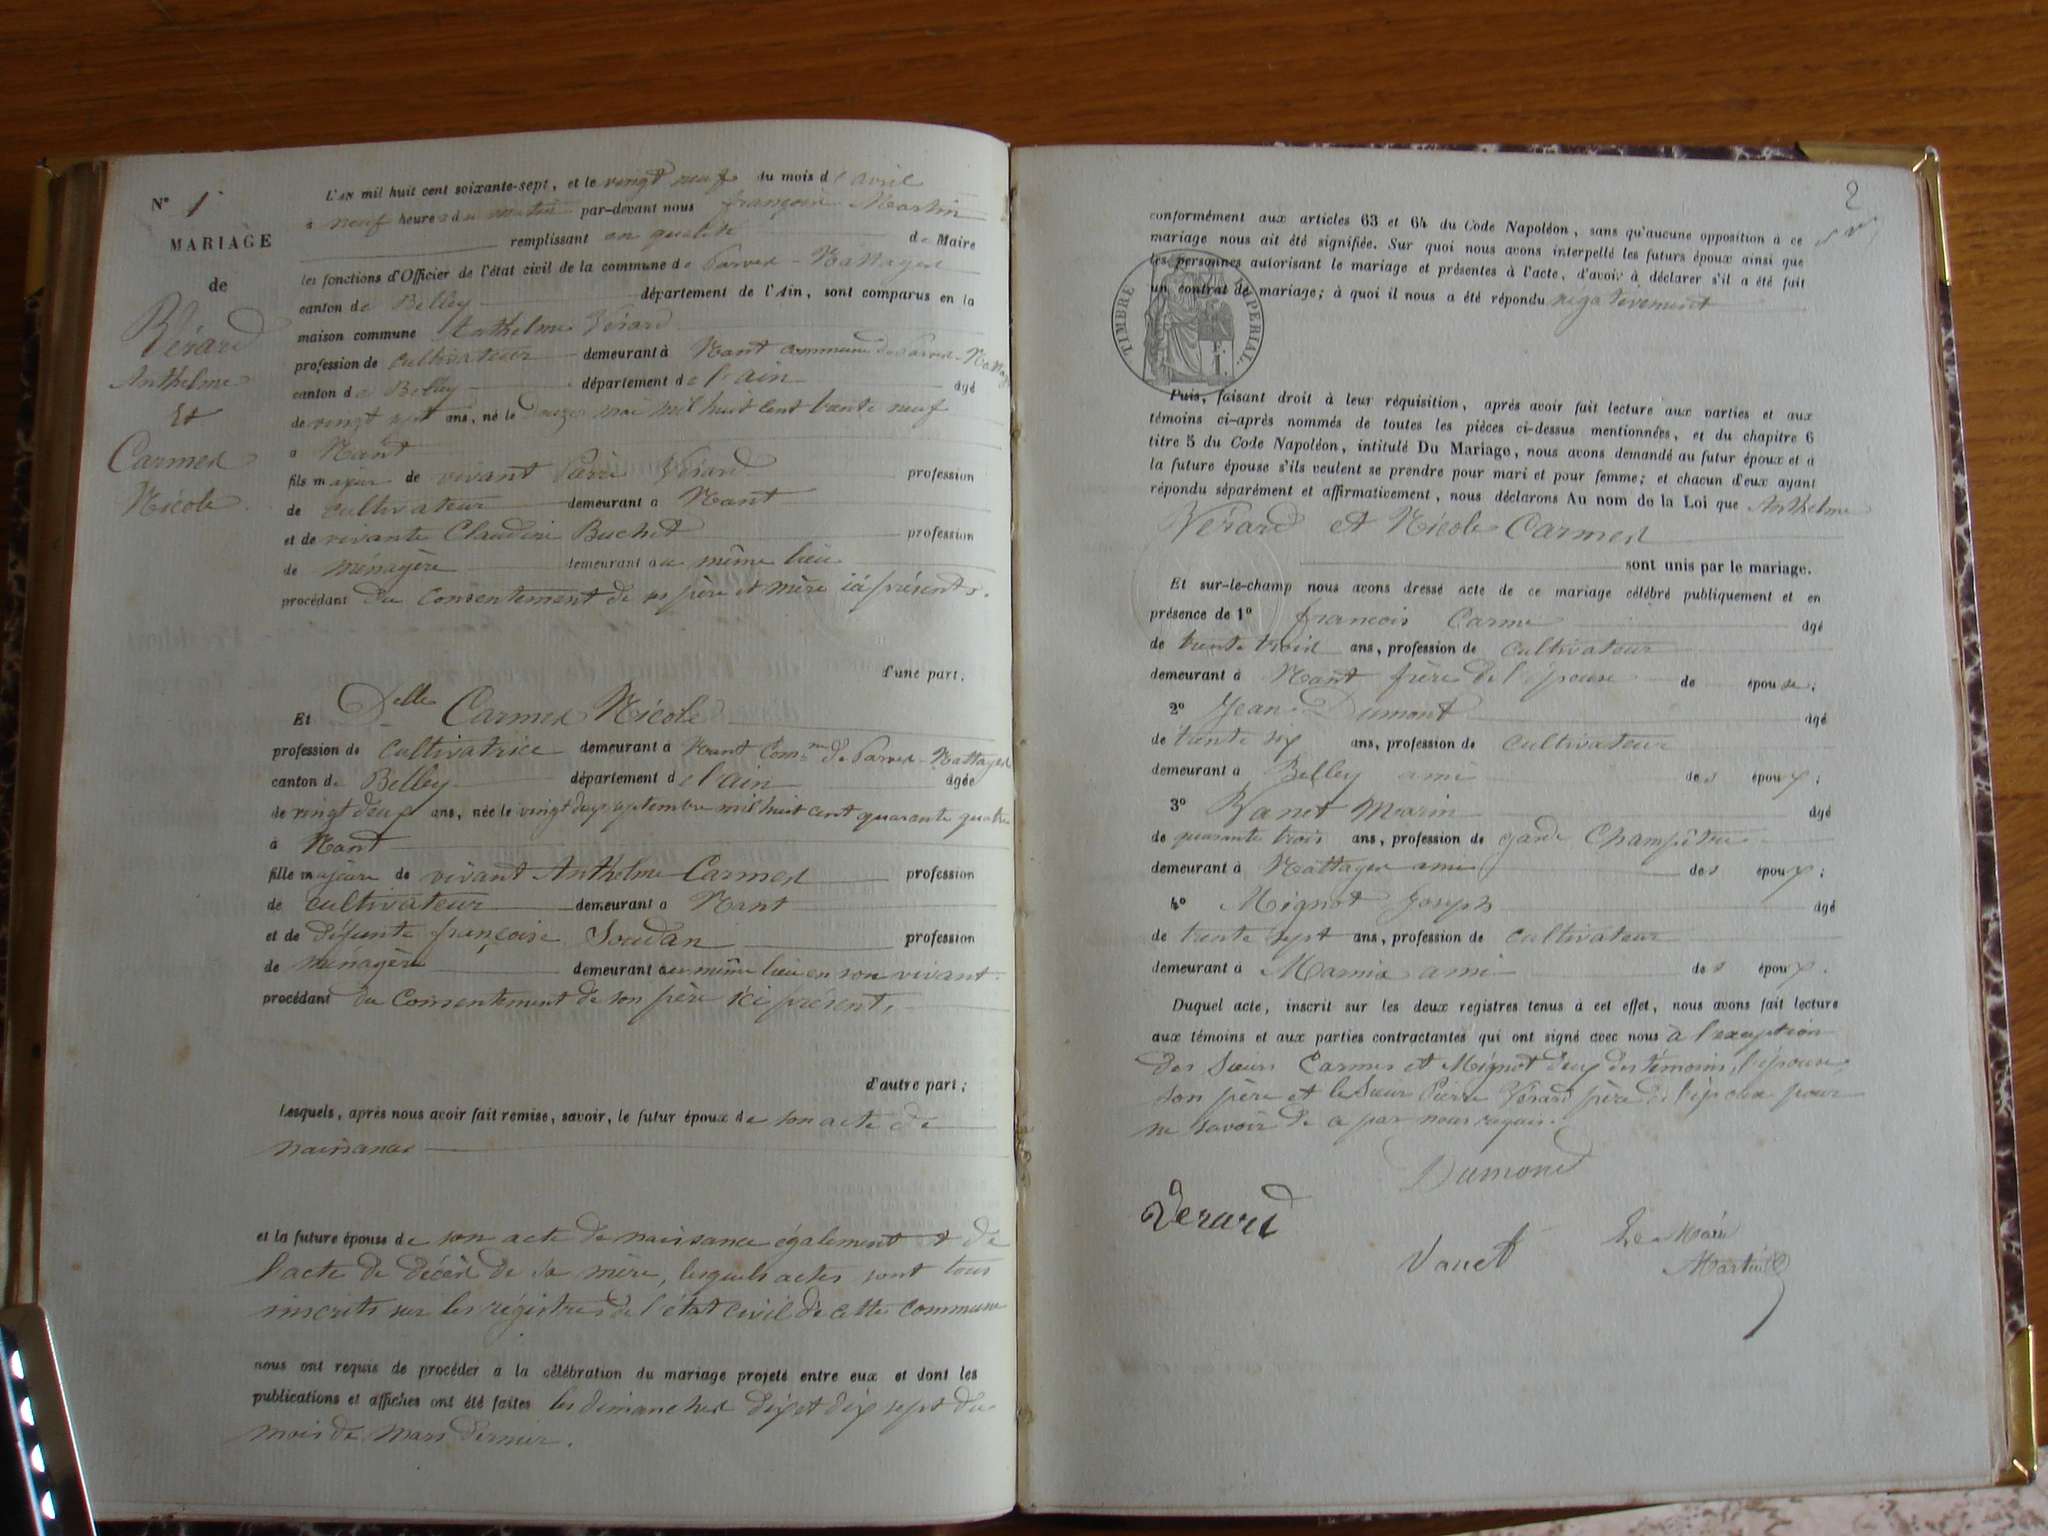 N° 1
MARIAGE
de
Vérard
Anthelme
Et
Carmes
Nicole
L'AN mil huit cent soixante-sept, et le vingt neuf du mois d'avril
à neuf heures du matin par-devant nous françois Martin
remplissant en qualité de Maire
les fonctions d'Officier de l'état civil de la commune de Parves-Nattages
canton de Belley département de l'Ain, sont comparus en la
maison commune Anthelme Vérard
profession de cultivateur demeurant à Nant commune de Parves-Nattages
canton de Belley département de l'ain âgé
de vingt sept ans, né le douze mai mil huit cent trente neuf
à Nant
fils majeur de vivant Pierre Vérard profession
de cultivateur demeurant à Nant
et de vivante Claudine Buchet profession
de ménagère demeurant au même lieu
procédant du consentement de ses père et mère ici présents.
d'une part;
Et Delle Carmes Nicole
profession de cultivatrice demeurant à Nant Comne de Parves-Nattages
canton de Belley département de l'ain âgée
de vingt deux ans, née le vingt deux septembre mil huit cent quarante quatre
à Nant
fille majeure de vivant Anthelme Carmes profession
de cultivateur demeurant à Nant
et de défunte françoise Soudan profession
de ménagère demeurant au même lieu en son vivant.
procédant du consentement de son père ici présent,
d'autre part;
Lesquels, après nous avoir fait remise, savoir, le futur époux de son acte de
naissance
et la future épouse de son acte de naissance également et de
l'acte de décès de sa mère, lesquels actes sont tous
inscrits sur les régistres de l'état civil de cette commune
nous ont requis de procéder à la célébration du mariage projeté entre eux et dont les
publications et affiches ont été faites les dimanches dix et dix sept du
mois de mars dernier.
2
conformément aux articles 63 et 64 du Code Napoléon, sans qu'aucune opposition à ce
mariage nous ait été signifiée. Sur quoi nous avons interpellé les futurs époux ainsi que
les personnes autorisant le mariage et présentes à l'acte, d'avoir à déclarer s'il a été fait
un contrat de mariage; à quoi il nous a été répondu négativement
TIMBRE IMPERIAL
Puis, faisant droit à leur réquisition, après avoir fait lecture aux parties et aux
témoins ci-après nommés de toutes les pièces ci-dessus mentionnées, et du chapitre 6
titre 5 du Code Napoléon, intitulé Du Mariage, nous avons demandé au futur époux et à
la future épouse s'ils veulent se prendre pour mari et pour femme; et chacun d'eux ayant
répondu séparément et affirmativement, nous déclarons Au nom de la Loi que Anthelme
Vérard et Nicole Carmes
sont unis par le mariage.
Et sur-le-champ nous avons dressé acte de ce mariage célébré publiquement et en
présence de 1° francois Carme âgé
de trente trois ans, profession de cultivateur
demeurant à Nant frère de l'épouse de épouse;
2° Jean Dumont âgé
de trente six ans, profession de cultivateur
demeurant à Belley ami des époux;
3° Vanet Marin âgé
de quarante trois ans, profession de garde Champêtre
demeurant à Nattages ami des époux;
4° Mignot Joseph âgé
de trente sept ans, profession de cultivateur
demeurant à Marnix ami des époux.
Duquel acte, inscrit sur les deux registres tenus à cet effet, nous avons fait lecture
aux témoins et aux parties contractantes qui ont signé avec nous à l'exception
des Sieurs Carmes et Mignot deux des témoins, l'épouse,
son père et le Sieur Pierre Vérard père de l'époux pour
ne savoir de ce par nous requis.
Dumond
Verard
Vanet
Le Maire
Martin